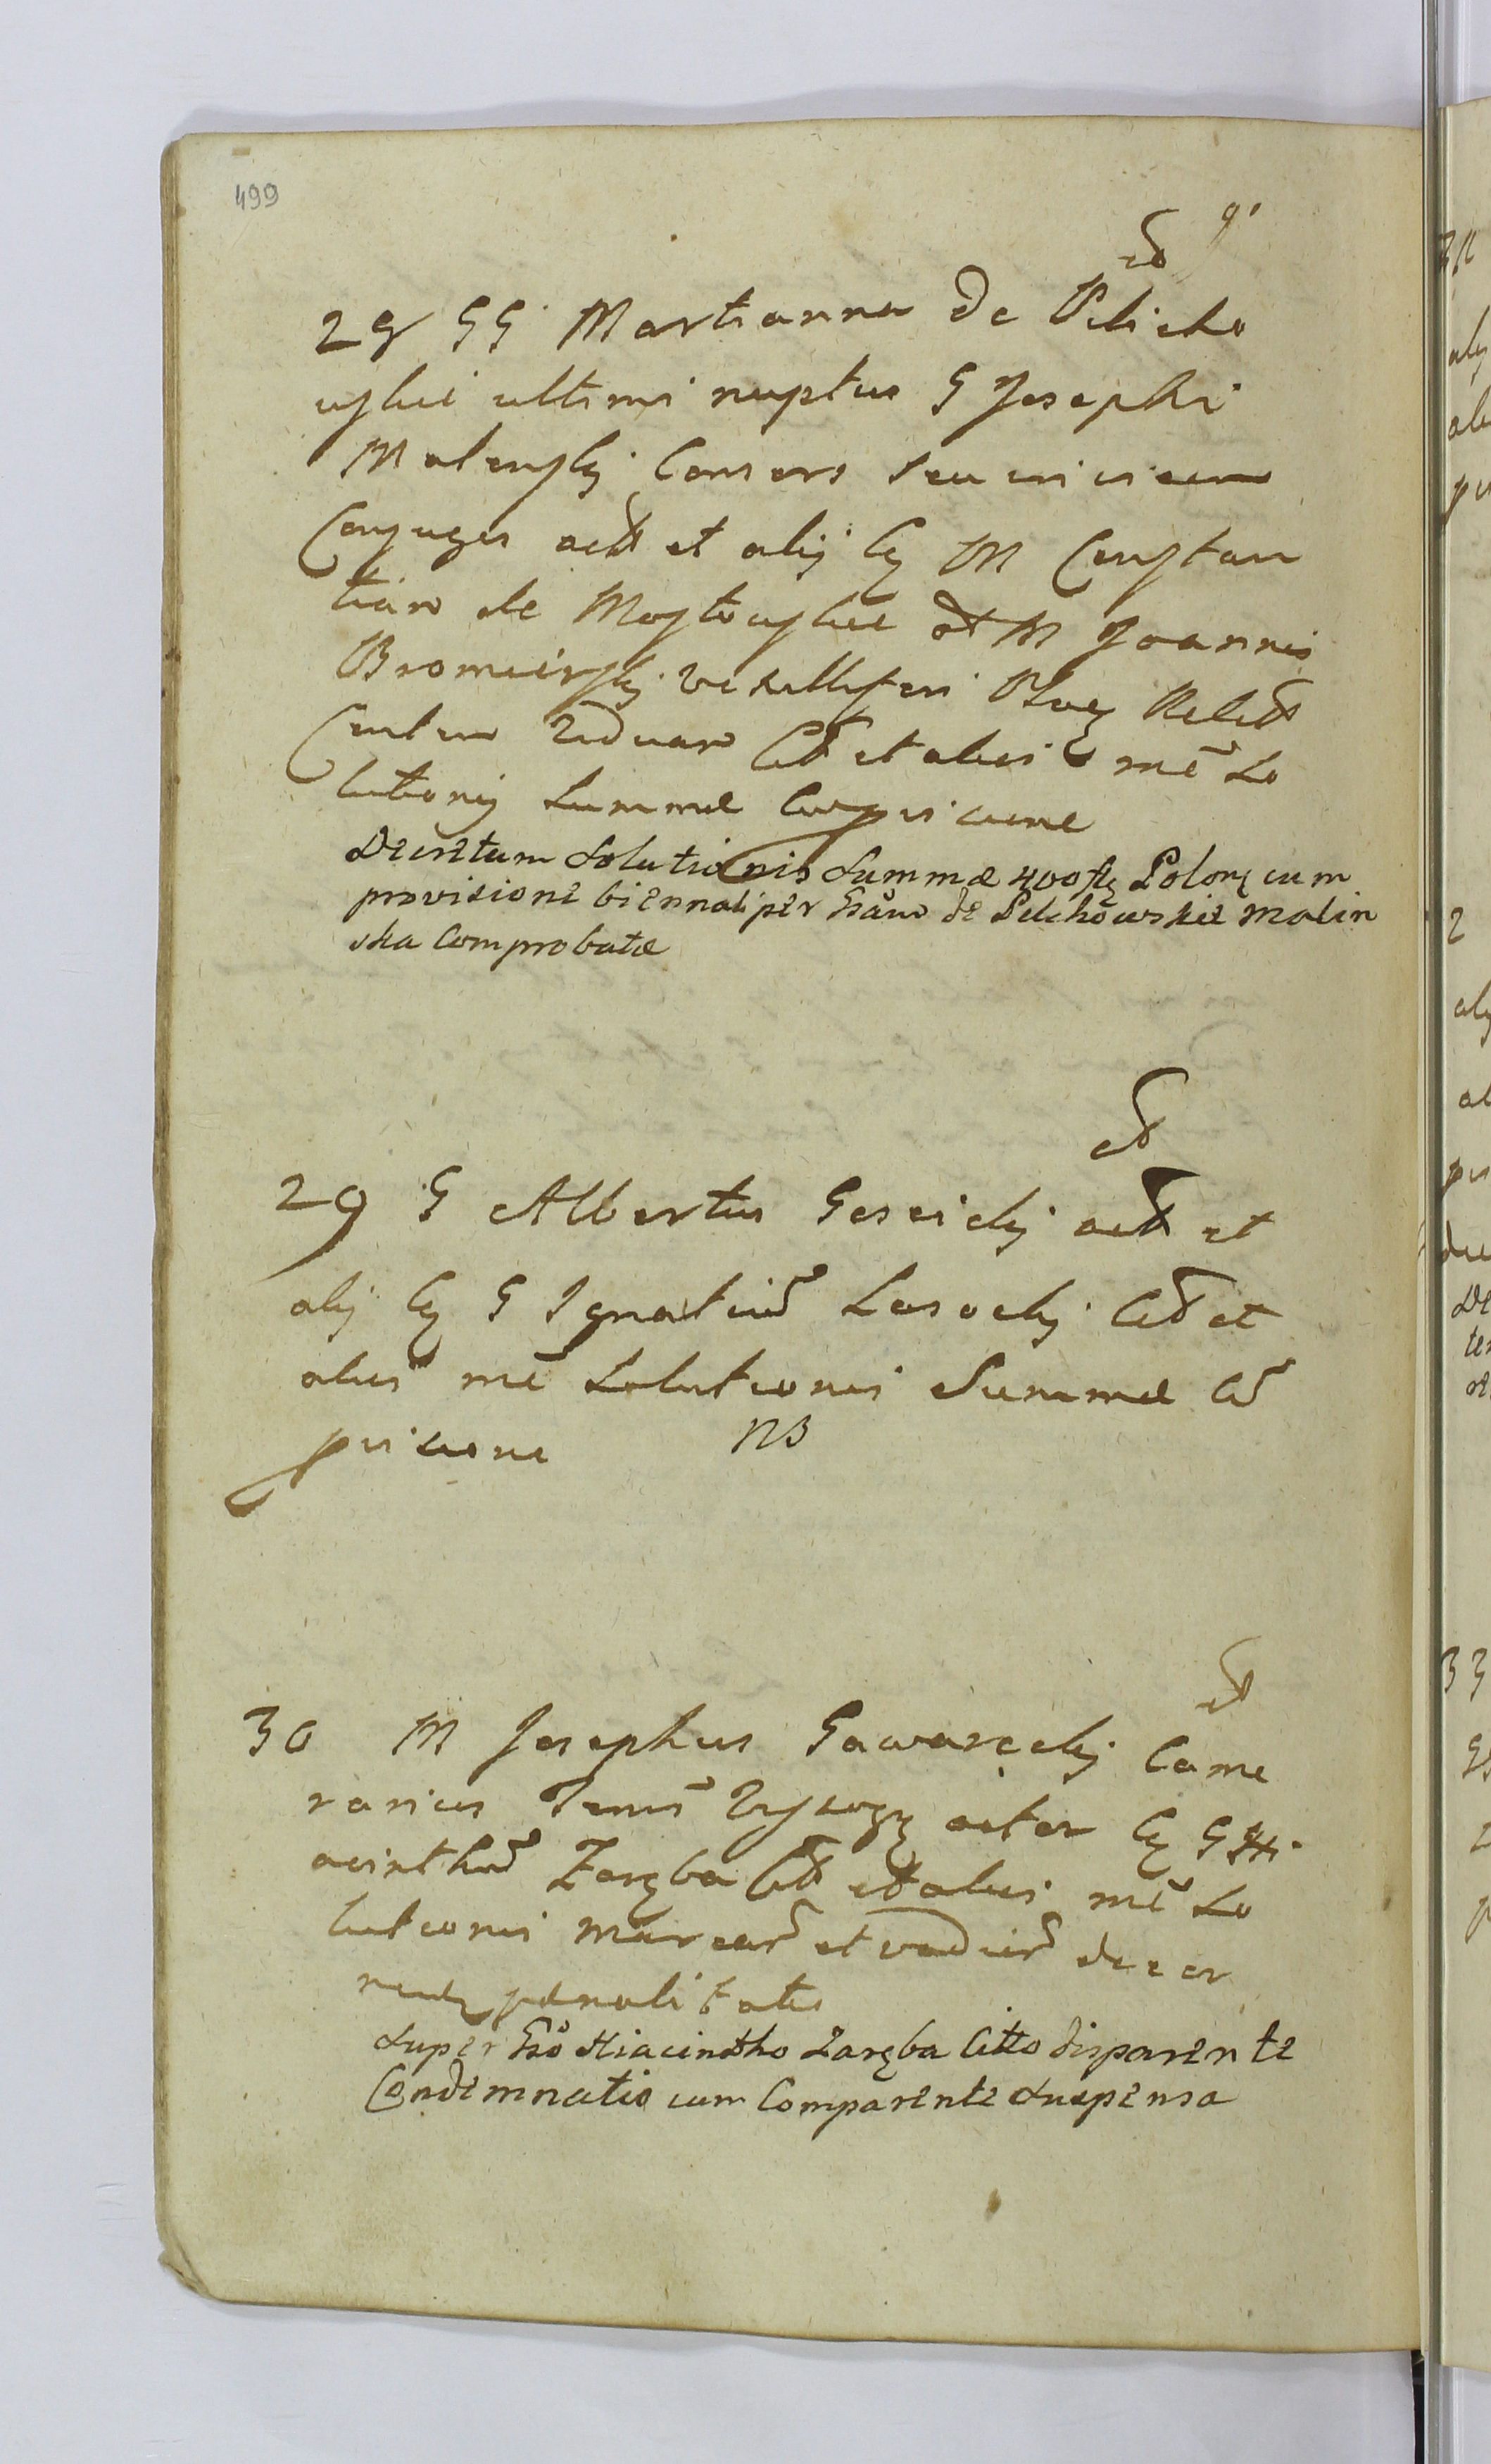 499
28 GG Martianna de Pelicho
wskie ultimi nuptus G Josephi
Malenskj Consors seu invicem
Conjuges act et alij Cq M Constan
tian de Mostowskie M Joannis
Bromierskj vexilliferi Ploc Relict
viduam Cit et alios me So
lutionis Summæ Cum pisicione
Decretum Solutionis Summæ 400 flq Polonq cum
provisione biennali per Gsam de Pelchowskie Malin
ska Comprobatæ
29 G Albertus Goscickj act et
alij Cq G Ignatium Lasockj Cit et
alios me Solutionis Summæ Cu
pisicione NB
30 M Josephus Gawareckj Came
rarius Terris Wyssogq actor Cq G Hi
acinthum Zaręba Cit et alios me So
lutionis marcar et vadior decer
nend penalitatis
Super Gso Hiacintho Zaręba Citto disparente
Condemnatio cum Comparente suspensa